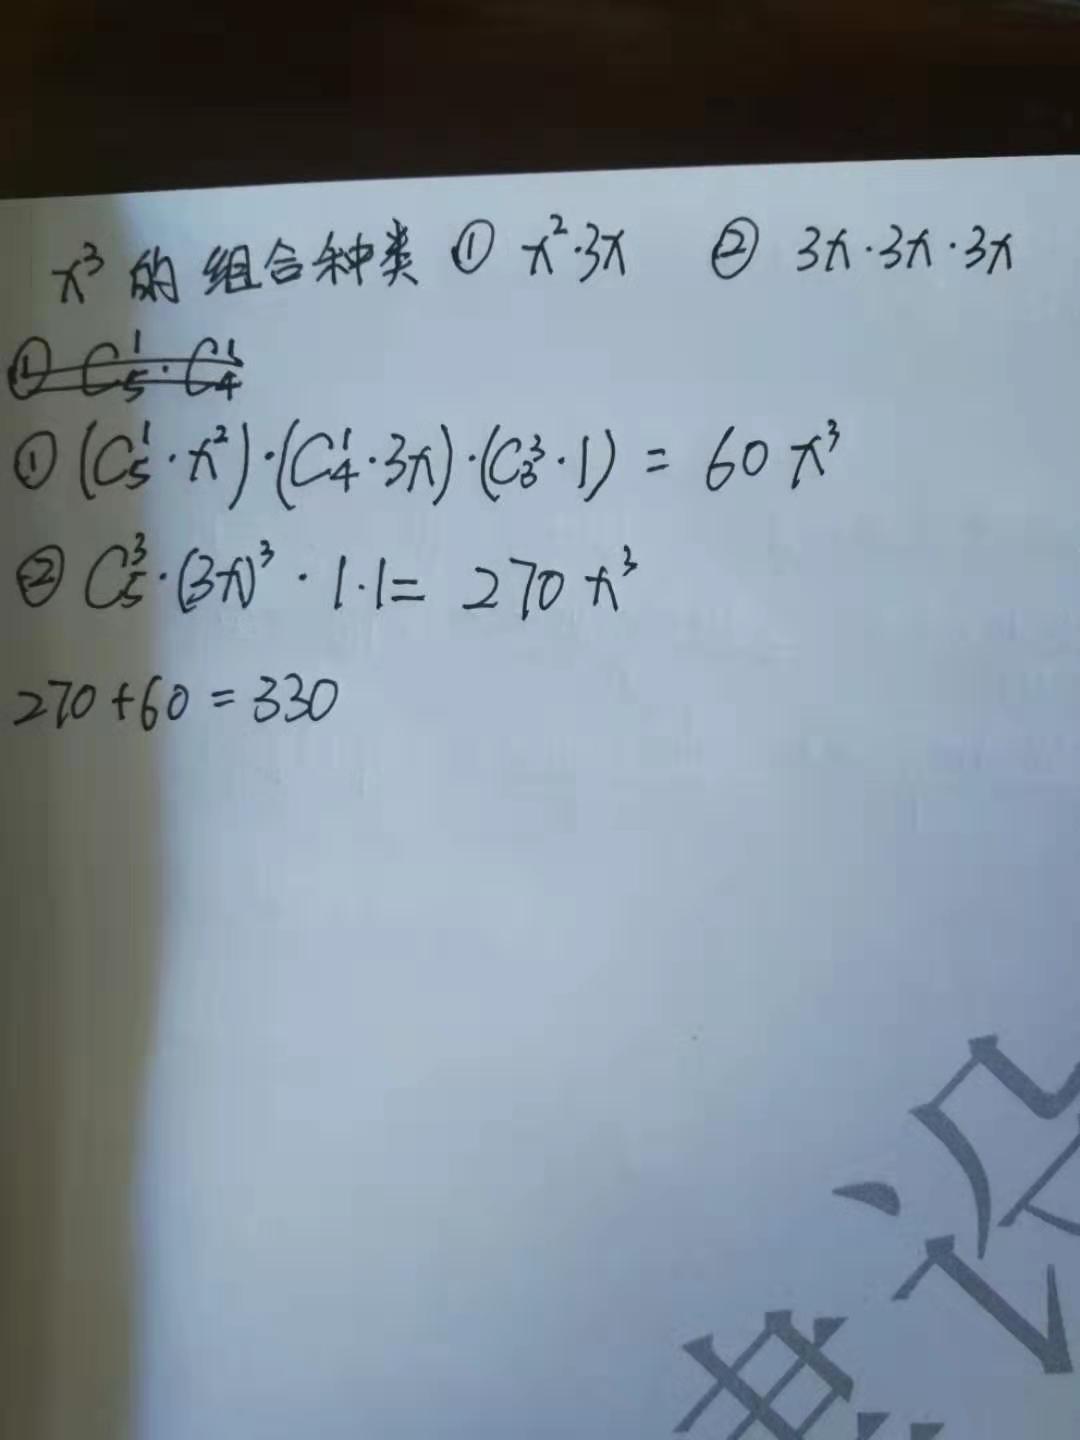 x³的组合种类 ① x²·3x ② 3x·3x·3x
① (C₅¹·x²)·(C₄¹·3x)·(C₃³·1) = 60x³
② C₅³·(3x)³·1·1= 270x³
270+60=330